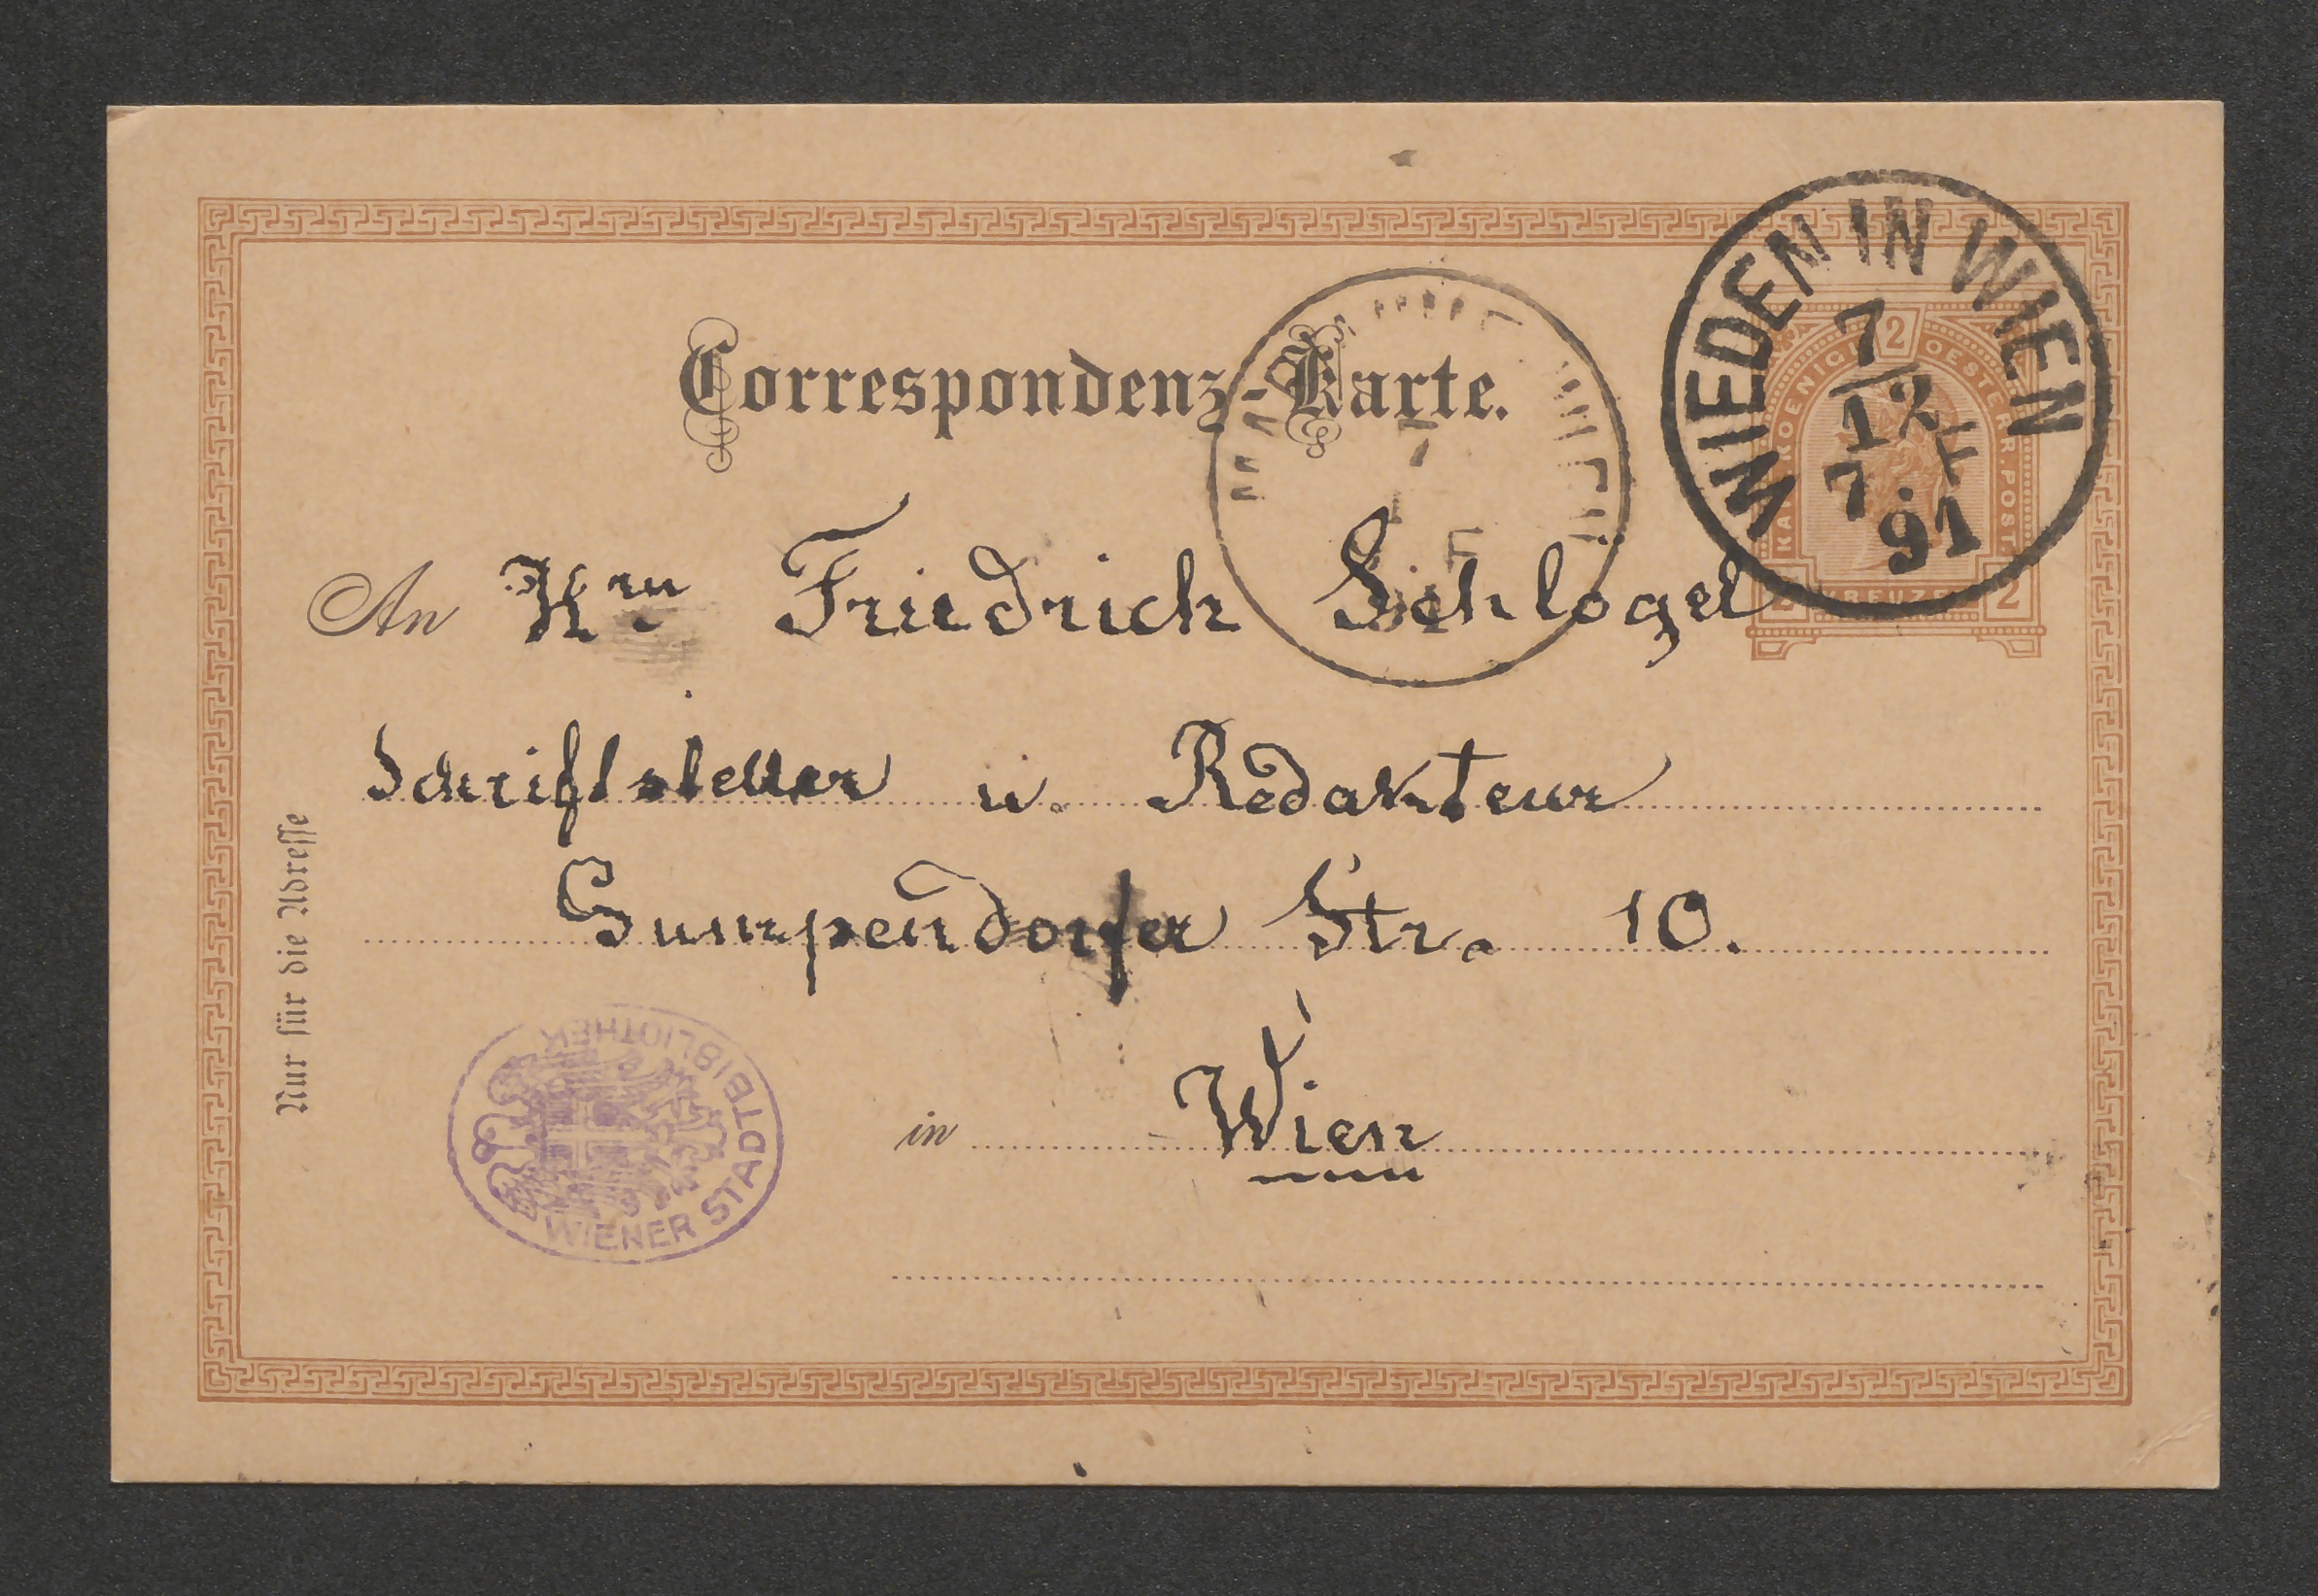 Correspondenz-Karte.
WIEDEN IN WIEN
7
12
7
91
2
KOENIGL OESTERR. POST.
KREUZER 2
An Hrn. Friedrich Schlogel
Schriftsteller u. Redakteur
Gumpendorfer Str. 10.
in Wien
Nur für die Adresse
WIENER STADTBIBLIOTHEK